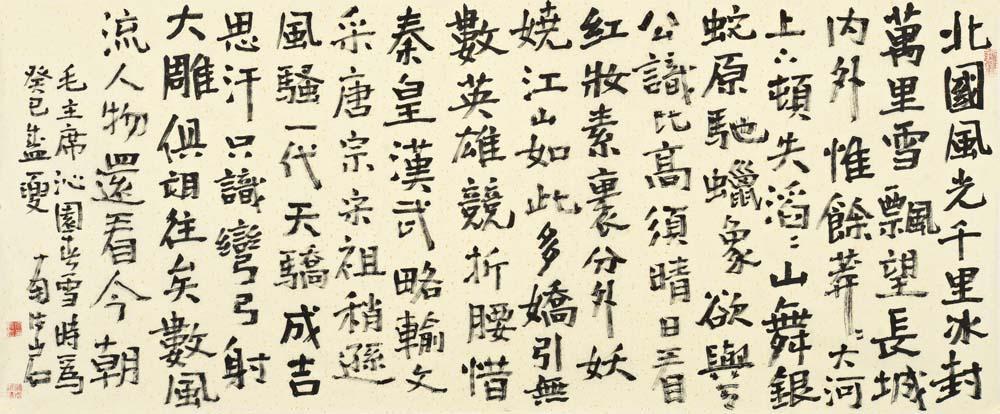 北國風光千里冰封
萬里雪飄望長城
内外惟餘莽〻大河
上下頓失滔〻山舞銀
蛇原馳蠟象欲與天
公識比高須晴日看
紅妝素裹分外妖
嬈江山如此多嬌引無
數英雄競折腰惜
秦皇漢武略輸文
采唐宗宋祖稍遜
風騷一代天驕成吉
思汗只識彎弓射
大雕俱往矣數風
流人物還看今朝
毛主席沁園春雪時爲
癸巳盛夏